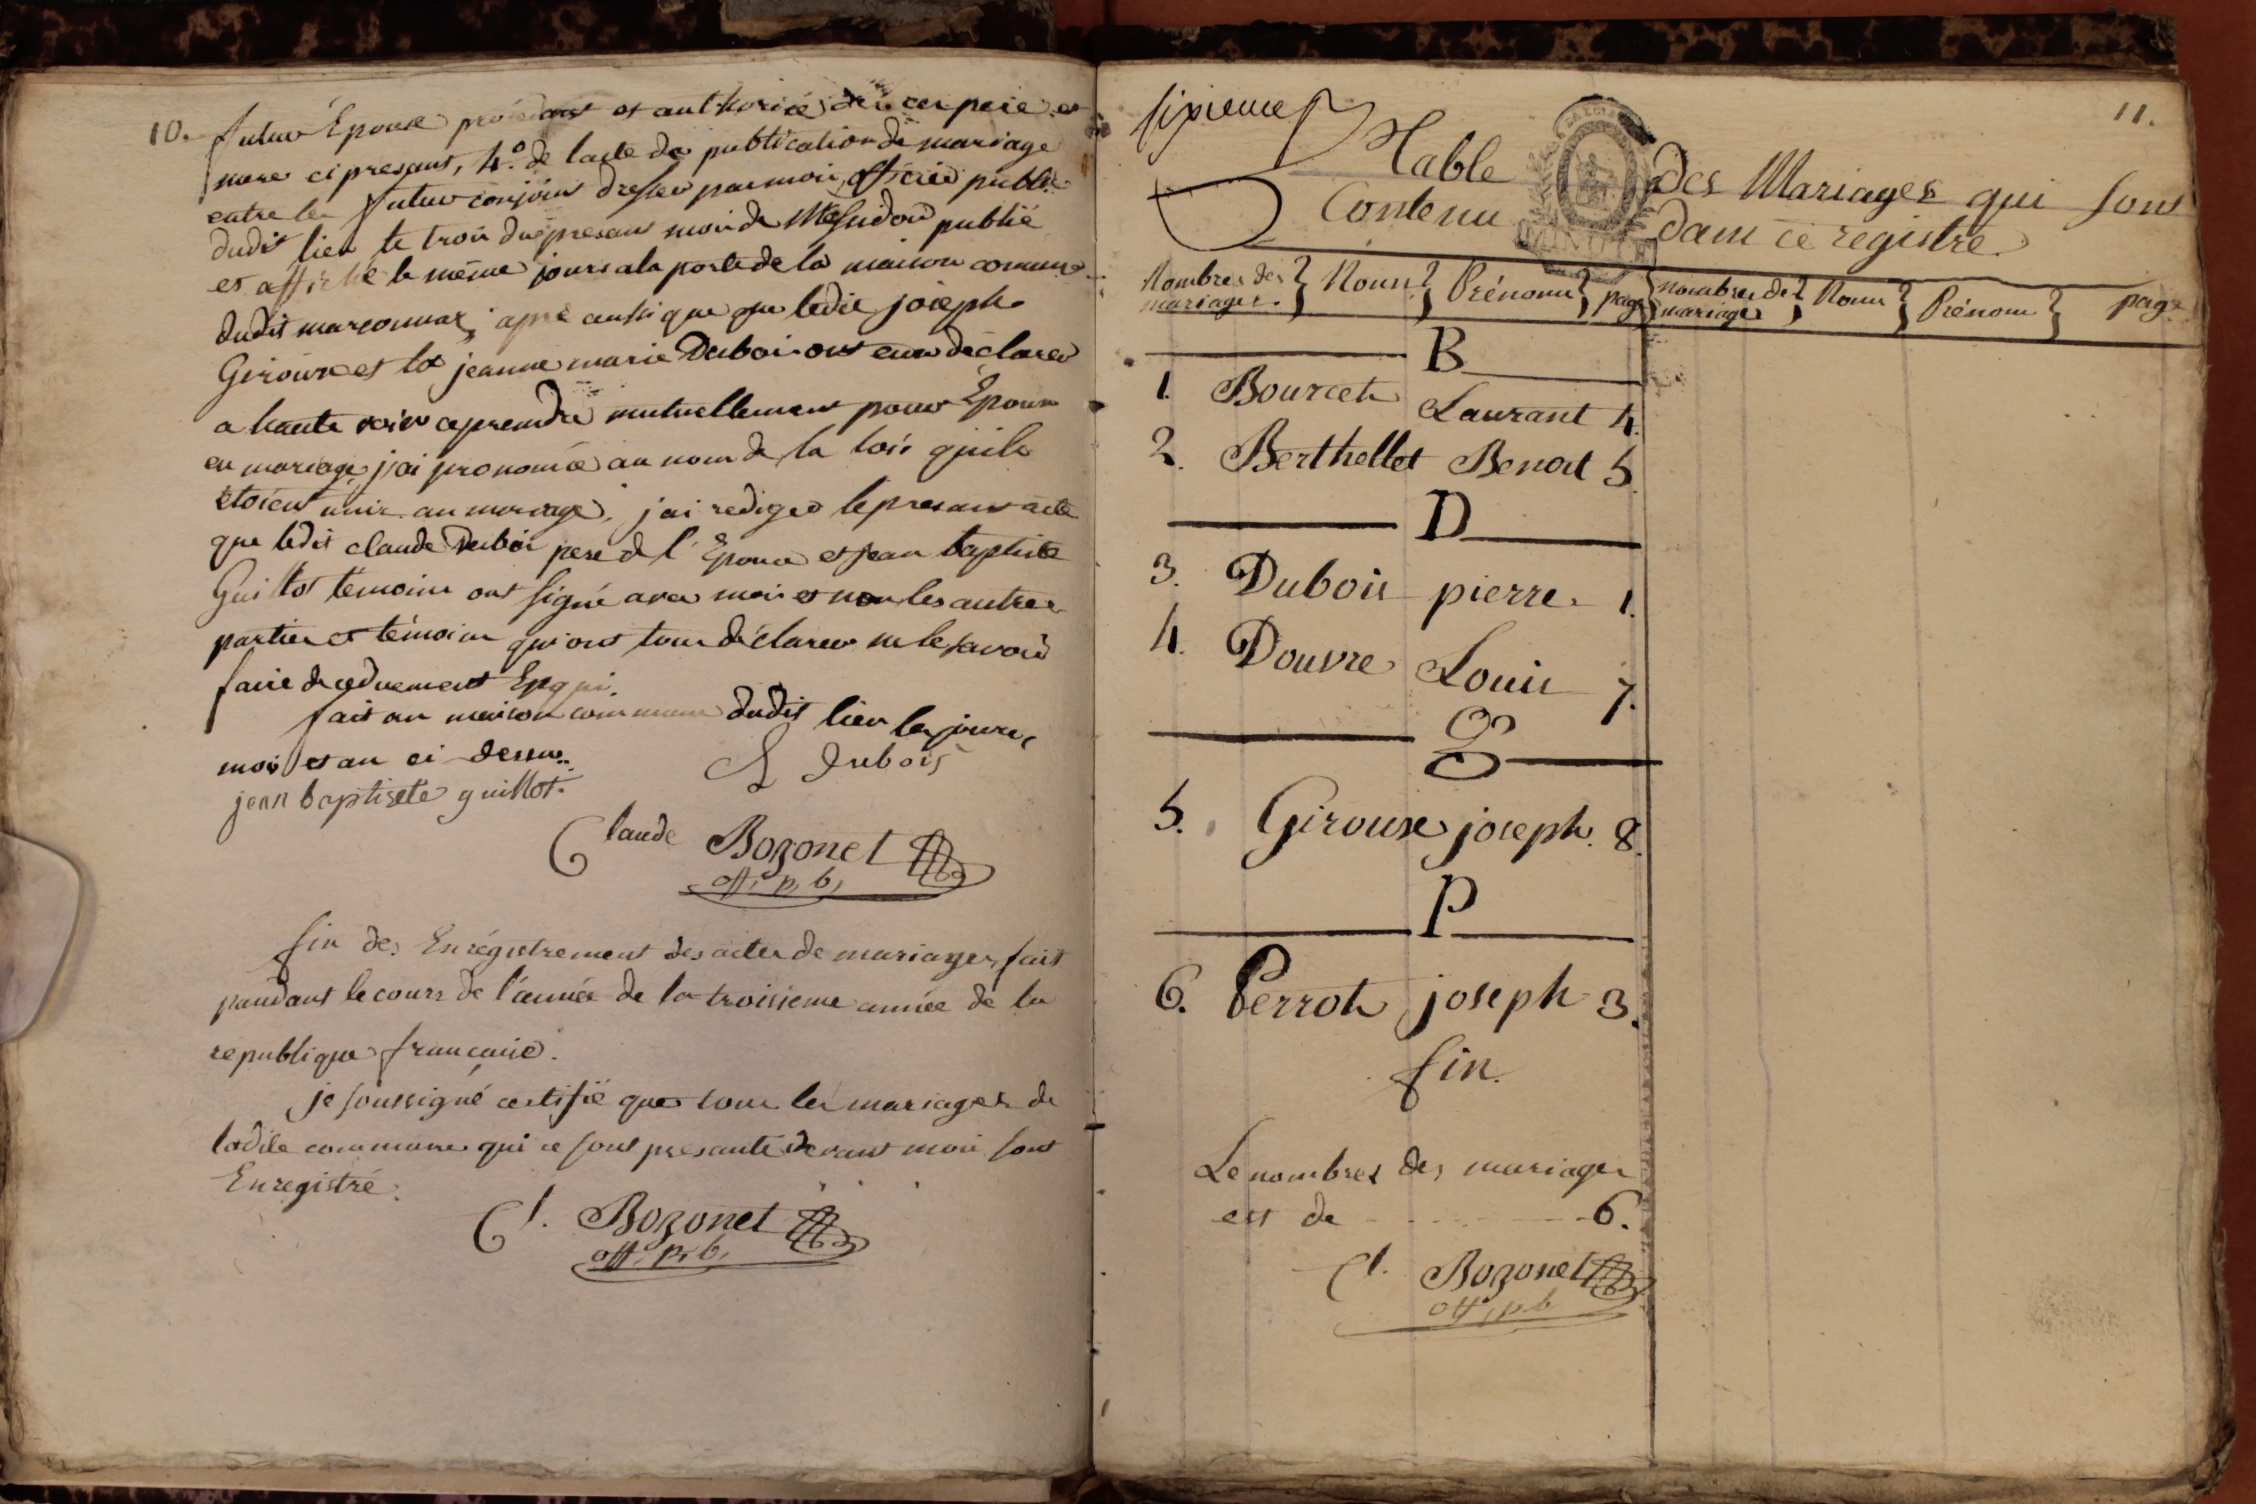 10.
futur Epouse et authorisé de ces pere et
mere ci presant, 4.o de lacte de publication de mariage
entre les futur conjoins dressé par moi officié public
dudit lieu le trois du presant mois de Messidor publié
et affiché le même jours a la porte de la maison comune
dudit marconnax; apré aussi que que ledit joseph
Giroux et la jeanne marie Dubois ont eux déclarer
a haute voix ce prendre mutuellement pour Epoux
en mariage, j'ai prononcé au nom de la lois quils
étoient unis au mariage, j'ai rediger le presant acte
que ledit claude Dubois pere de l'Epouse et jean baptiste
Guillot temoins ont signé avec moi et non les autres
parties et témoins qui ont tous déclarer ne le savoir
faire de cednement Enquis.
fait an maison commune dudit lieu les jours,
mois et an ci dessus.
Cl Dubois
jean baptisete guillot.
Claude Bozonet
off, p, b,
fin des Enrégistrement des actes de mariages, fait
pandant le cours de l'année de la troisieme année de la
republique francaise.
je soussigné certifié que tous les mariages de
ladite commune qui ce sont presanté devant moi sont
Enregistré.
Cl. Bozonet
off, p, b,
11.
sixieme
Table des Mariages qui sont
Contenu dans ce registre.
Nombres des mariages. Noms Prénoms page nombres de mariages Noms Prénoms page
B
1. Bourcet Laurant 4.
2. Berthellet Benoit 5.
D
3. Dubois pierre 1.
4. Douvre Louis 7.
G
5. Giroux joseph. 8.
P
6. Perrot joseph 3.
fin.
Le nombres des mariages
est de 6.
Cl. Bozonet
off, p b